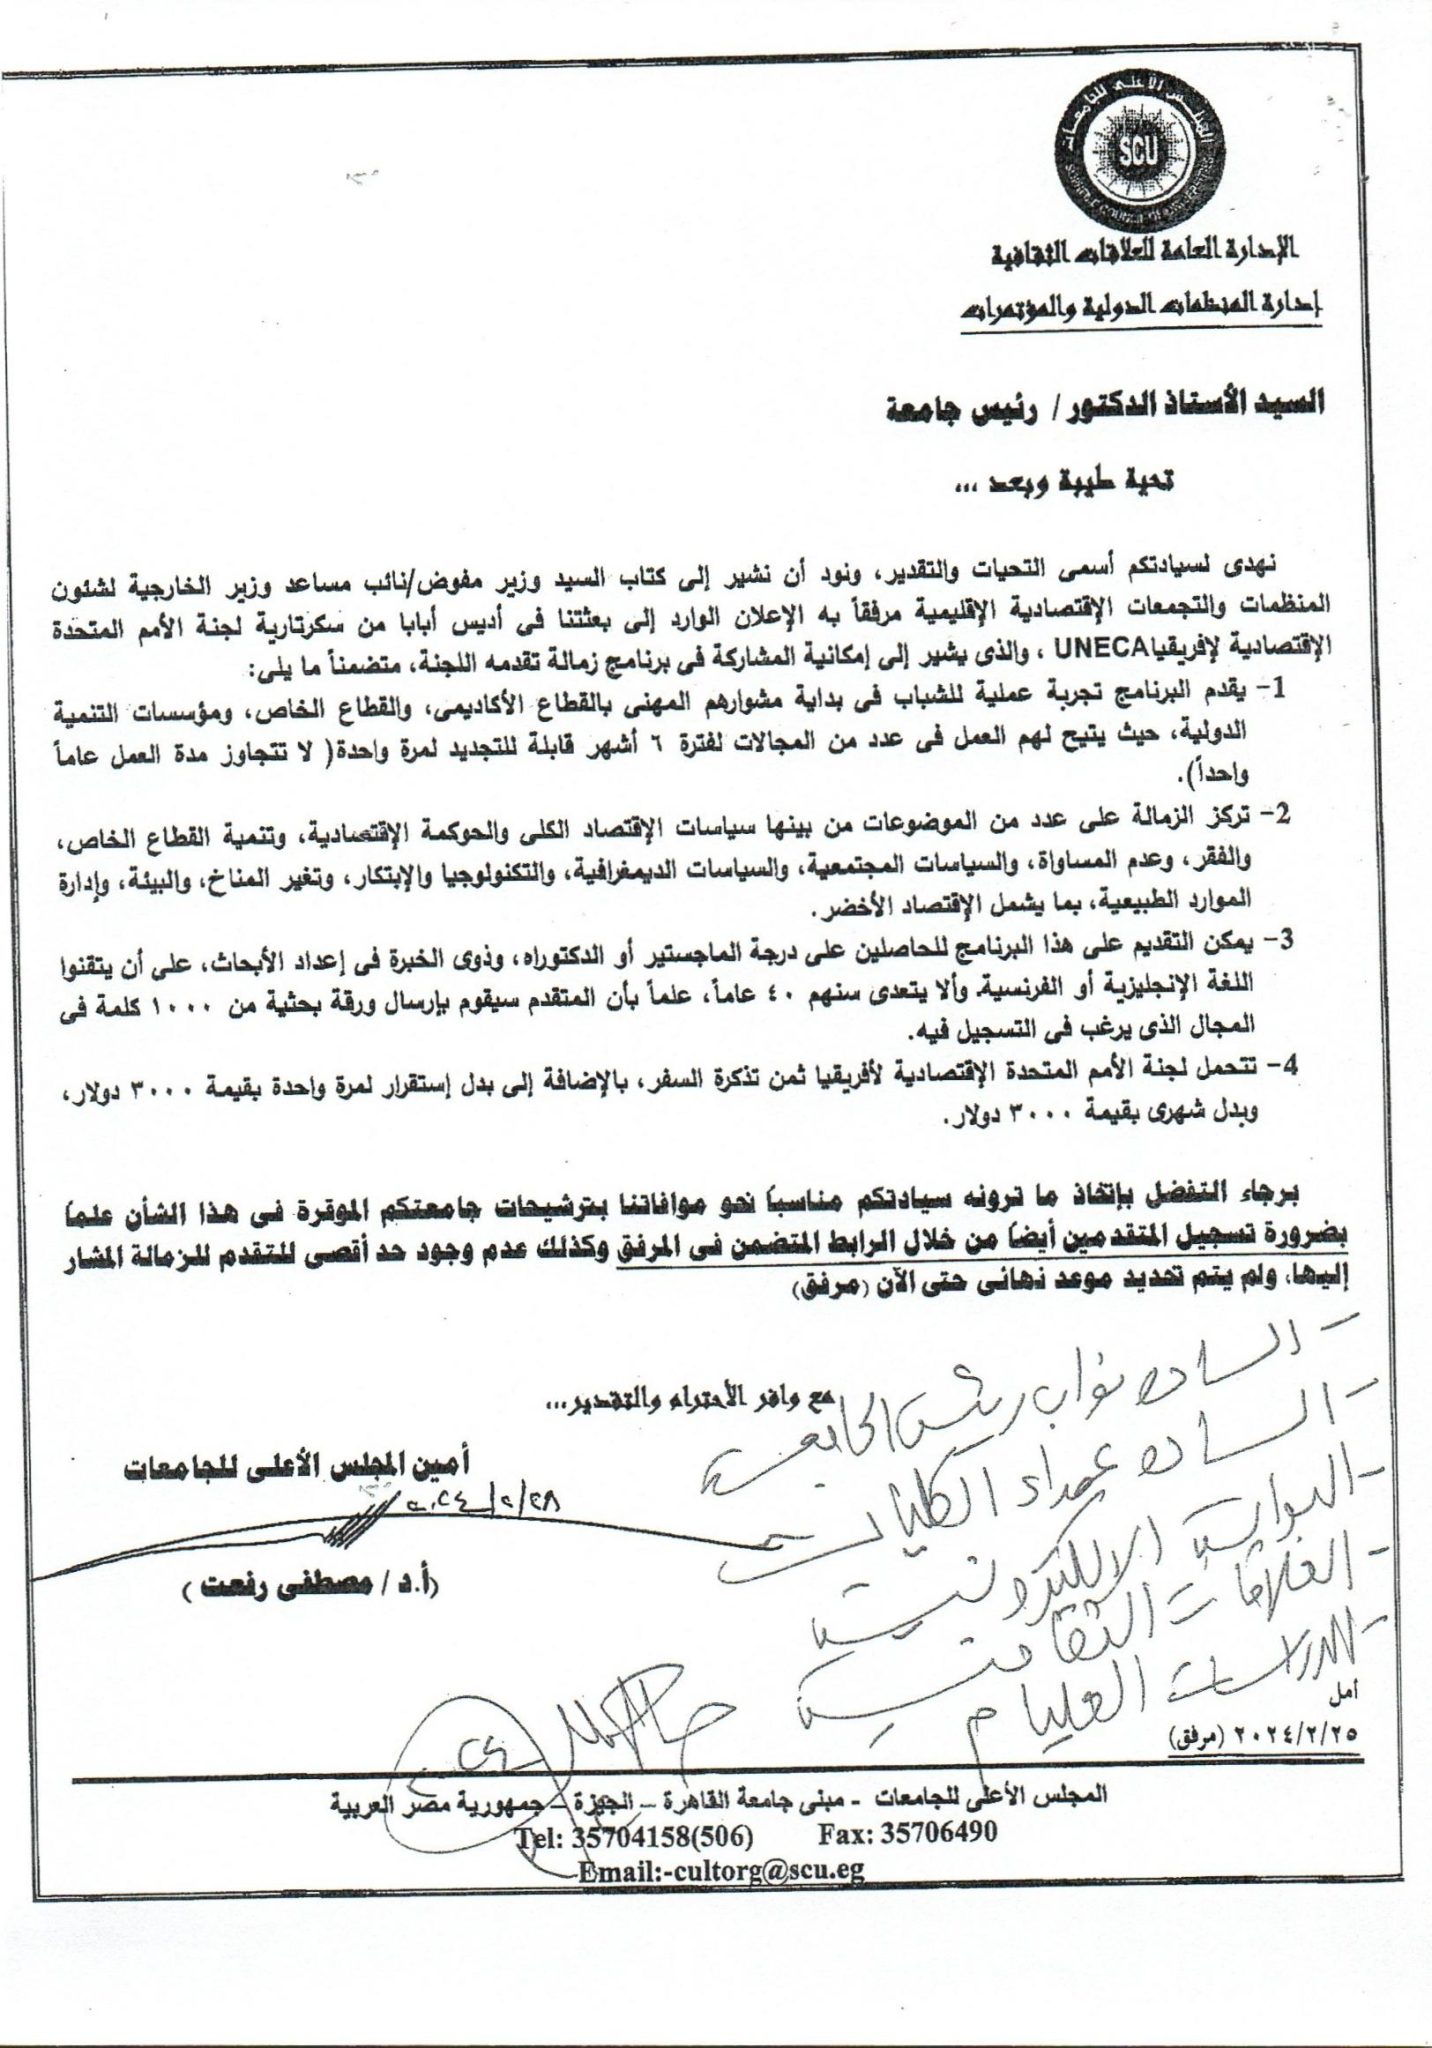 المجلس الأعلى للجامعات
SCU
SUPREME COUNCIL OF UNIVERSITIES
الإدارة العامة للعلاقات الثقافية
إدارة المنظمات الدولية والمؤتمرات
السيد الأستاذ الدكتور/ رئيس جامعة
تحية طيبة وبعد ...
نهدى لسيادتكم أسمى التحيات والتقدير، ونود أن نشير إلى كتاب السيد وزير مفوض/نائب مساعد وزير الخارجية لشئون
المنظمات والتجمعات الإقتصادية الإقليمية مرفقاً به الإعلان الوارد إلى بعثتنا فى أديس أبابا من سكرتارية لجنة الأمم المتحدة
الإقتصادية لإفريقياUNECA ، والذى يشير إلى إمكانية المشاركة فى برنامج زمالة تقدمه اللجنة، متضمناً ما يلى:
1- يقدم البرنامج تجربة عملية للشباب فى بداية مشوارهم المهنى بالقطاع الأكاديمى، والقطاع الخاص، ومؤسسات التنمية
الدولية، حيث يتيح لهم العمل فى عدد من المجالات لفترة ٦ أشهر قابلة للتجديد لمرة واحدة( لا تتجاوز مدة العمل عاماً
واحداً).
2- تركز الزمالة على عدد من الموضوعات من بينها سياسات الإقتصاد الكلى والحوكمة الإقتصادية، وتنمية القطاع الخاص،
والفقر، وعدم المساواة، والسياسات المجتمعية، والسياسات الديمغرافية، والتكنولوجيا والإبتكار، وتغير المناخ، والبيئة، وإدارة
الموارد الطبيعية، بما يشمل الإقتصاد الأخضر.
3- يمكن التقديم على هذا البرنامج للحاصلين على درجة الماجستير أو الدكتوراه، وذوى الخبرة فى إعداد الأبحاث، على أن يتقنوا
اللغة الإنجليزية أو الفرنسية. وألا يتعدى سنهم ٤٠ عاماً، علماً بأن المتقدم سيقوم بإرسال ورقة بحثية من ١٠٠٠ كلمة فى
المجال الذى يرغب فى التسجيل فيه.
4- تتحمل لجنة الأمم المتحدة الإقتصادية لأفريقيا ثمن تذكرة السفر، بالإضافة إلى بدل إستقرار لمرة واحدة بقيمة ٣٠٠٠ دولار،
وبدل شهرى بقيمة ٣٠٠٠ دولار.
برجاء التفضل بإتخاذ ما ترونه سيادتكم مناسباً نحو موافاتنا بترشيحات جامعتكم الموقرة فى هذا الشأن علماً
بضرورة تسجيل المتقدمين أيضاً من خلال الرابط المتضمن فى المرفق وكذلك عدم وجود حد أقصى للتقدم للزمالة المشار
إليها، ولم يتم تحديد موعد نهائى حتى الآن (مرفق)
مع وافر الأحترام والتقدير...
أمين المجلس الأعلى للجامعات
٢٠٢٤/٢/٢٨
(أ.د / مصطفى رفعت )
- السادة نواب رئيس الجامعة
- السادة عمداء الكليات
- البوابة الالكترونية
- العلاقات الثقافية
- الدراسات العليا
أمل
٢٠٢٤/٢/٢٥ (مرفق)
المجلس الأعلى للجامعات - مبنى جامعة القاهرة – الجيزة – جمهورية مصر العربية
Tel: 35704158(506) Fax: 35706490
Email:-cultorg@scu.eg